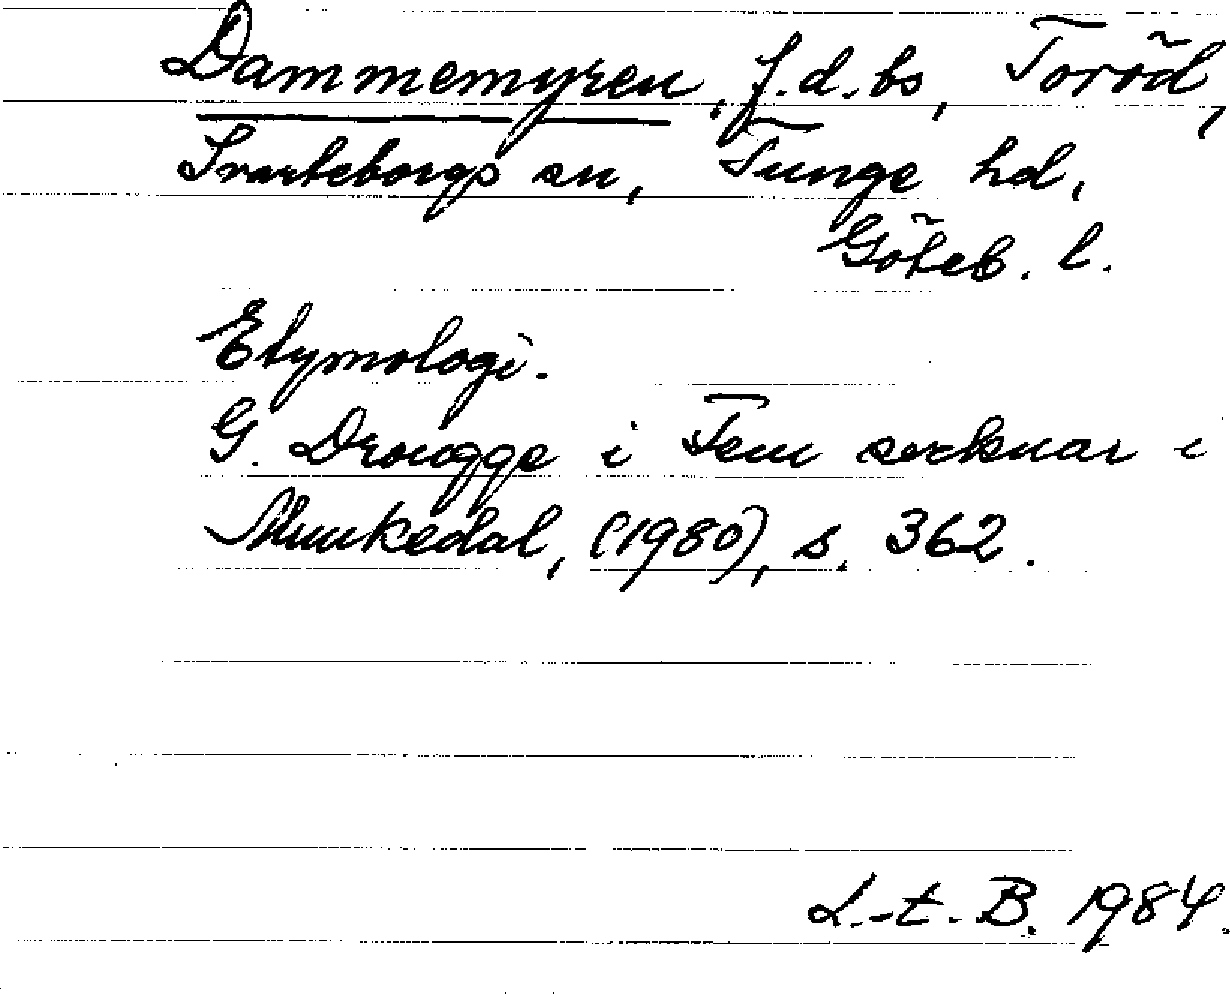 Dammemyren, f.d. bs, Toröd,
Svarteborgs sn, Tunge hd,
Göteb. l.
Etymologi.
G. Drougge i Fem socknar i
Munkedal, (1980), s. 362.
L.-t. B. 1984.